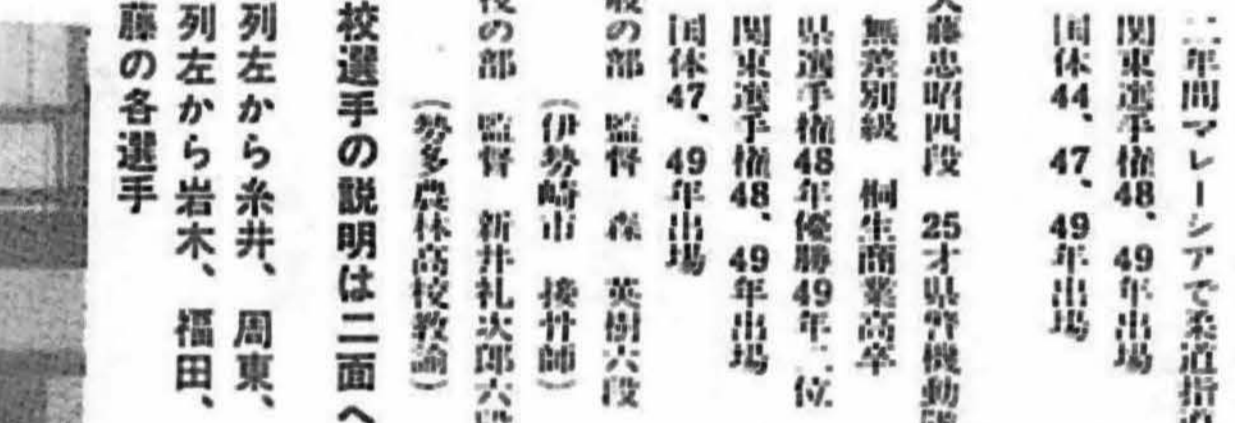 二年間マレーシアで柔道指
関東選手権48、49年出場
国体44、47、49年出場
藤忠昭四段 25才県警機動隊
無差別級 桐生商業高卒
県選手権48年優勝49年二位
関東選手権48、49年出場
国体47、49年出場
の部 監督 森 英樹六段
(伊勢崎市 接骨師)
の部 監督 新井礼次郎六段
(勢多農林高校教諭)
校選手の説明は二面へ
列左から糸井、周東、
列左から岩木、福田、
藤の各選手